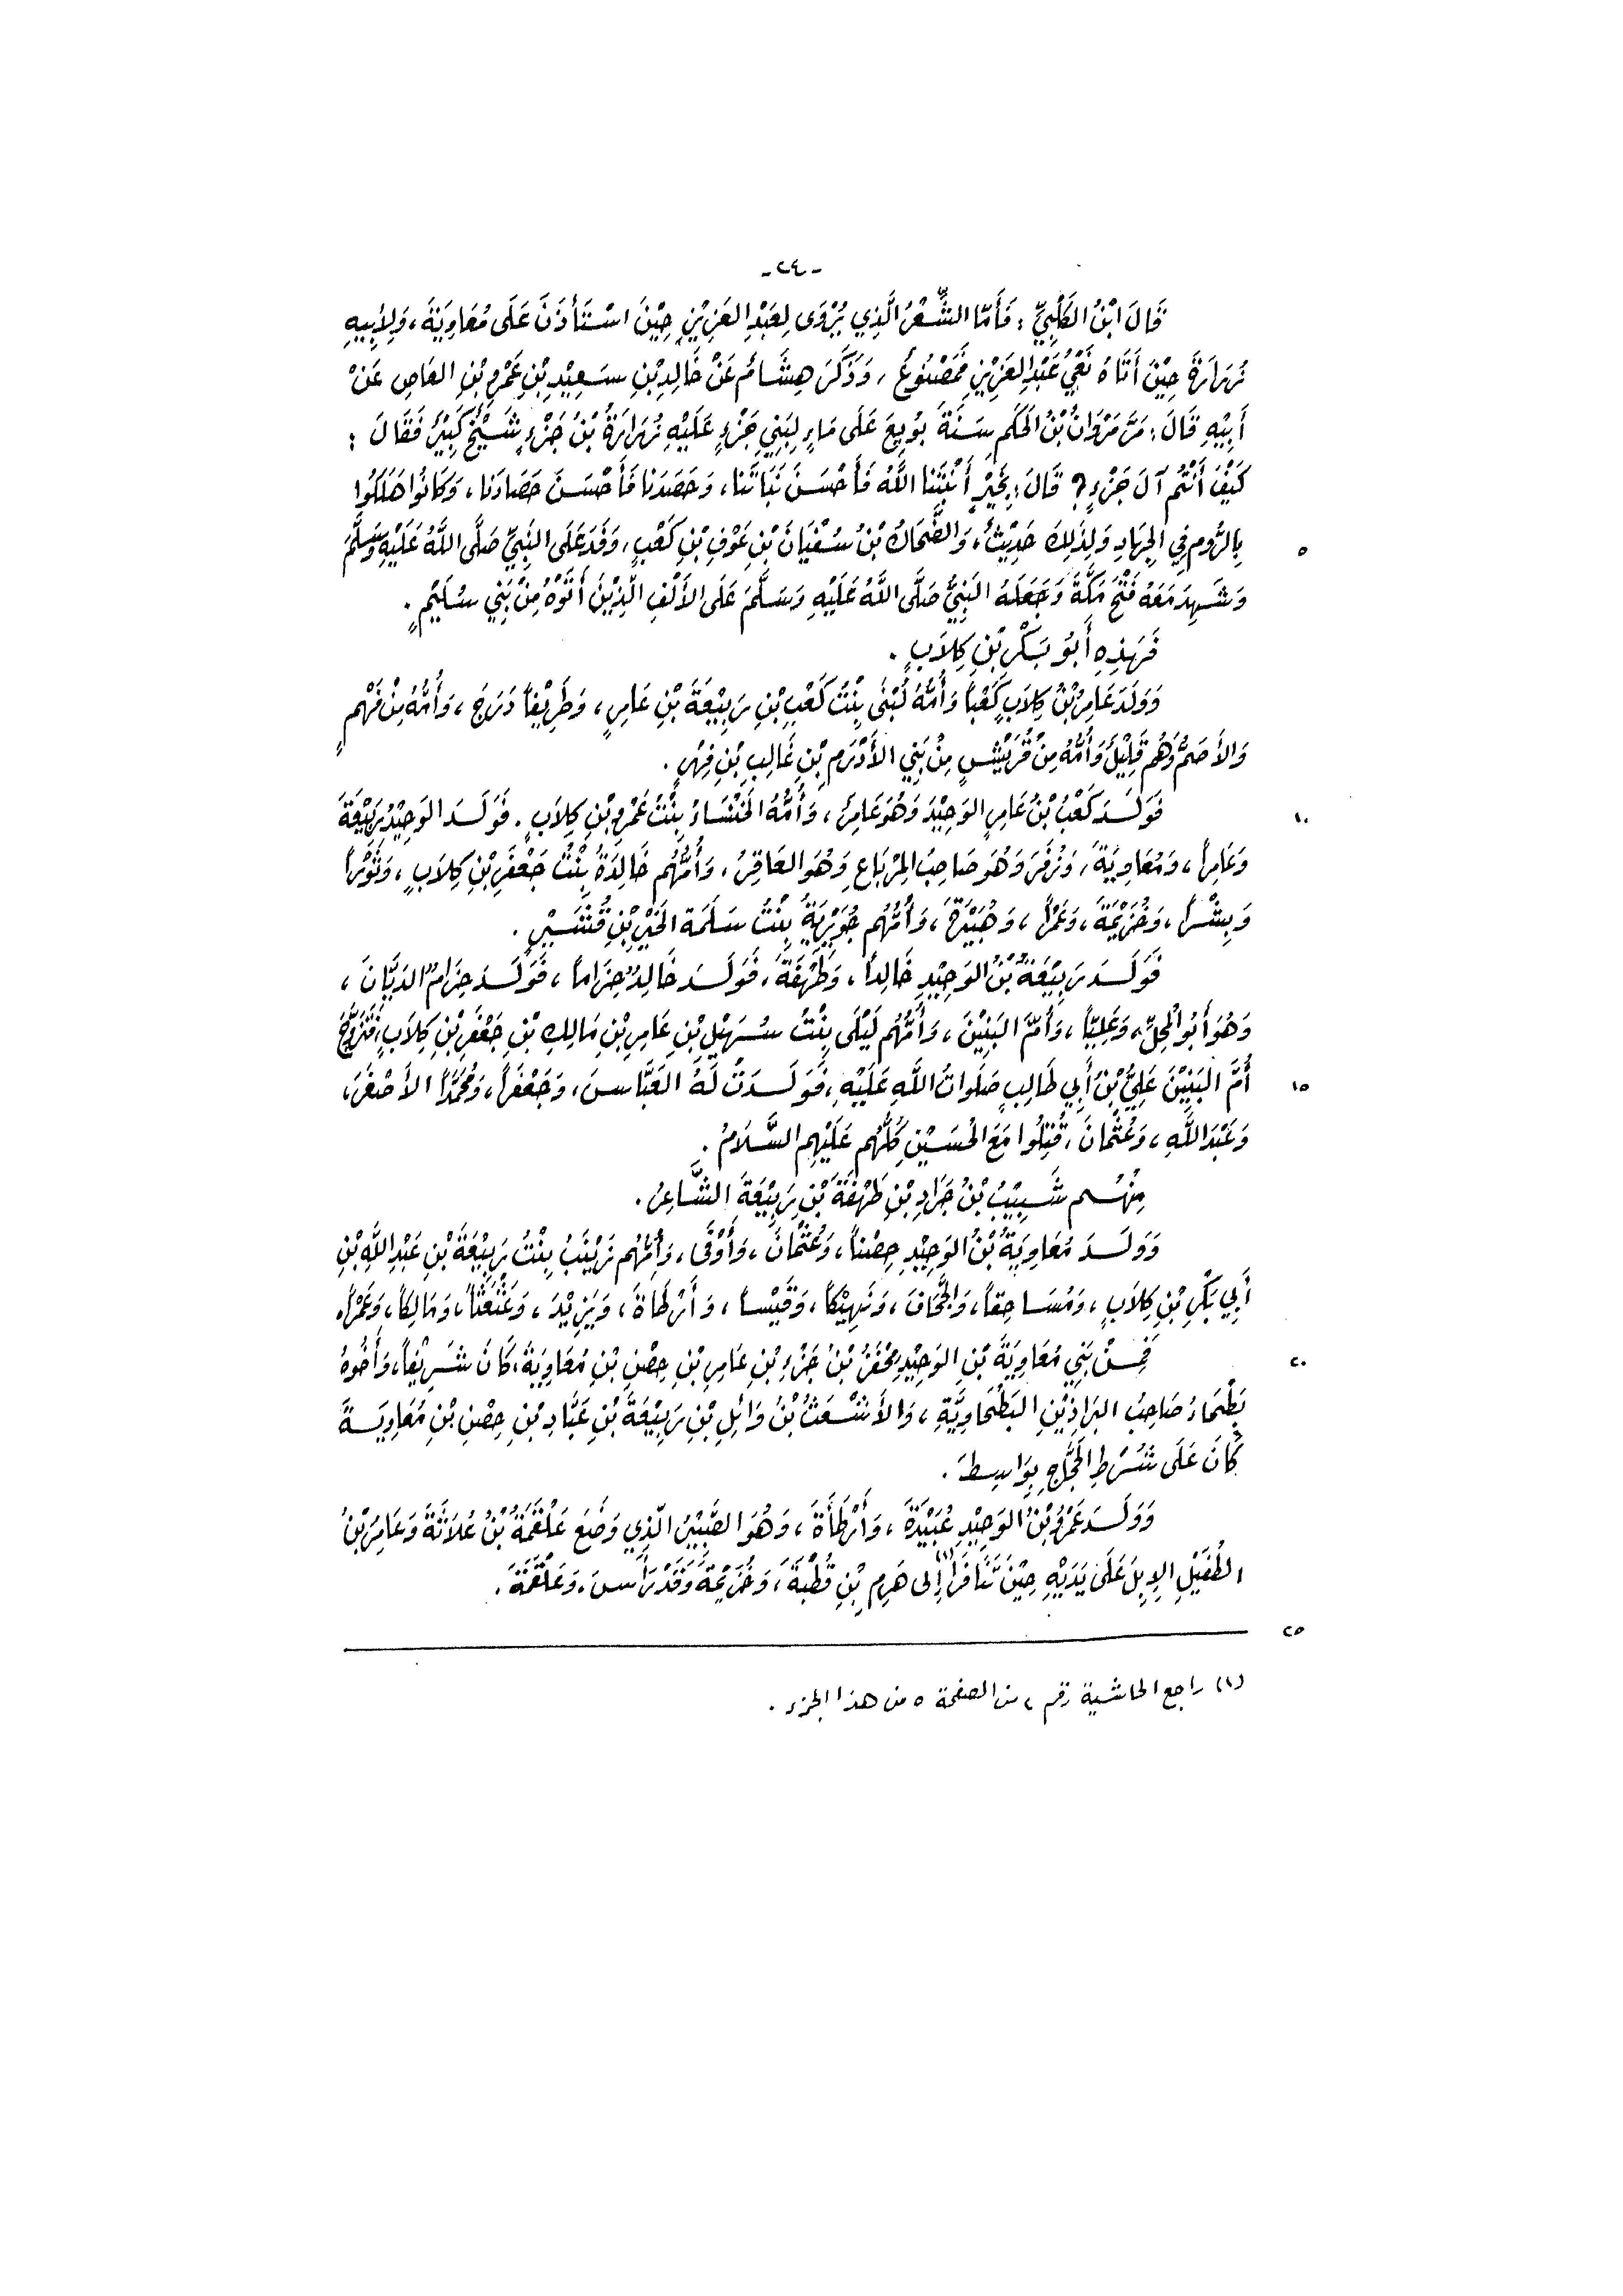 -٢٤-
قَالَ ابْنُ الكَلْبِيِّ : فَأَمَّا الشِّعْرُ الَّذِي يُرْوَى لِعَبْدِ العَزِيْزِ حِيْنَ اسْتَأْذَنَ عَلَى مُعَاوِيَةَ ، وَلِأَبِيهِ
زُرَارَةَ حِيْنَ أَتَاهُ نَعْيُ عَبْدِ العَزِيْزِ فَمَصْنُوعٌ ، وَذَكَرَ هِشَامُ عَنْ خَالِدِ بْنِ سَعِيْدِ بْنِ عَمْرِو بْنِ العَاصِ عَنْ
أَبِيْهِ قَالَ : مَرَّ مَرْوَانُ بْنُ الحَكَمِ سَنَةَ بُويِعَ عَلَى مَاءٍ لِبَنِي جَزْءٍ عَلَيْهِ زُرَارَةُ بْنُ جَزْءٍ شَيْخٌ كَبِيْرٌ فَقَالَ :
كَيْفَ أَنْتُم آلَ جَزْءٍ ؟ قَالَ : بِخَيْرٍ أَنْبَتَنا اللَّهُ فَأَحْسَنَ نَبَاتَنا ، وَحَصَدَنا فَأَحْسَنَ حَصَادَنا ، وَكَانُوا هَلَكُوا
بِالرُّومِ فِي الجِهَادِ وَلِذَلِكَ حَدِيْثٌ ، وَالضَّحَّاكُ بْنُ سُفْيَانَ بْنِ عَوْفِ بْنِ كَعْبٍ ، وَفَدَ عَلَى النَّبِيِّ صَلَّى اللَّهُ عَلَيْهِ وَسَلَّمَ
٥
وَشَهِدَ مَعَهُ فَتْحَ مَكَّةَ وَجَعَلَهُ النَّبِيُّ صَلَّى اللَّهُ عَلَيْهِ وَسَلَّمَ عَلَى الأَلْفِ الَّذِيْنَ أَتَوْهُ مِنْ بَنِي سُلَيْمٍ .
فَهَذِهِ أَبُو بَكْرِ بْنِ كِلَابٍ .
وَوَلَدَ عَامِرُ بْنُ كِلَابٍ كَعْباً وَأُمُّهُ لُبْنَى بِنْتُ كَعْبِ بْنِ رَبِيْعَةَ بْنِ عَامِرٍ ، وَطَرِيْفاً دَرَجَ ، وَأُمُّهُ مِنْ فَهْمٍ
وَالأَصَمَّ وَهُم قَلِيْلٌ وَأُمُّهُ مِنْ قُرَيْشٍ مِنْ بَنِي الأَدْرَمِ بْنِ غَالِبِ بْنِ فِهْرٍ .
فَوَلَدَ كَعْبُ بْنُ عَامِرٍ الوَحِيْدَ وَهُوَ عَامِرٌ ، وَأُمُّهُ الخَنْسَاءُ بِنْتُ عَمْرِو بْنِ كِلَابٍ . فَوَلَدَ الوَحِيْدُ رَبِيْعَةَ
١٠
وَعَامِراً ، وَمُعَاوِيَةَ ، وَزُفَرَ وَهُوَ صَاحِبُ المِرْبَاعِ وَهُوَ العَاقِرُ ، وَأُمُّهُم خَالِدَةُ بِنْتُ جَعْفَرِ بْنِ كِلَابٍ ، وَثَوْراً
وَبِشْراً ، وَخُزَيْمَةَ ، وَعَمْراً ، وَهُبَيْرَةَ ، وَأُمُّهُم جُوَيْرِيَةُ بِنْتُ سَلَمَةَ الخَيْرِ بْنِ قُشَيْرٍ .
فَوَلَدَ رَبِيْعَةُ بْنُ الوَحِيْدِ خَالِداً ، وَطَهْفَةَ ، فَوَلَدَ خَالِدٌ حِزَاماً ، فَوَلَدَ حِزَامٌ الدَّيَّانَ ،
وَهُوَ أَبُو المُحِلِّ ، وَعَلِيّاً ، وَأُمَّ البَنِيْنَ ، وَأُمُّهُم لَيْلَى بِنْتُ سُهَيْلِ بْنِ عَامِرِ بْنِ مَالِكِ بْنِ جَعْفَرِ بْنِ كِلَابٍ ، فَتَزَوَّجَ
أُمَّ البَنِيْنَ عَلِيُّ بْنُ أَبِي طَالِبٍ صَلَوَاتُ اللَّهِ عَلَيْهِ ، فَوَلَدَتْ لَهُ العَبَّاسَ ، وَجَعْفَراً ، وَمُحَمَّداً الأَصْغَرَ ،
١٥
وَعَبْدَ اللَّهِ ، وَعُثْمَانَ ، قُتِلُوا مَعَ الحُسَيْنِ كُلُّهُم عَلَيْهِم السَّلَامُ .
مِنْهُم شَبِيْبُ بْنُ جَرَادِ بْنِ طَهْفَةَ بْنِ رَبِيْعَةَ الشَّاعِرُ .
وَوَلَدَ مُعَاوِيَةُ بْنُ الوَحِيْدِ حِصْناً ، وَعُثْمَانَ ، وَأَوْفَى ، وَأُمُّهُم زَيْنَبُ بِنْتُ رَبِيْعَةَ بْنِ عَبْدِ اللَّهِ بْنِ
أَبِي بَكْرِ بْنِ كِلَابٍ ، وَمُسَاحِقاً ، وَالجَحَّافَ ، وَنَهِيْكاً ، وَقَيْساً ، وَأَرْطَاةَ ، وَيَزِيْدَ ، وَعَثْعَثاً ، وَمَالِكاً ، وَعَمْراً .
فَمِنْ بَنِي مُعَاوِيَةَ بْنِ الوَحِيْدِ مُحْفَزُ بْنُ جَزْءِ بْنِ عَامِرِ بْنِ حِصْنِ بْنِ مُعَاوِيَةَ ، كَانَ شَرِيْفاً ، وَأَخُوهُ
٢٠
بَطْحَاءُ صَاحِبُ البَرَاذِيْنِ البَطْحَاوِيَّةِ ، وَالأَشْعَثُ بْنُ وَائِلِ بْنِ رَبِيْعَةَ بْنِ عَبَّادِ بْنِ حِصْنِ بْنِ مُعَاوِيَةَ
كَانَ عَلَى شُرَطِ الحَجَّاجِ بِوَاسِطَ .
وَوَلَدَ عَمْرُو بْنُ الوَحِيْدِ عُبَيْدَةَ ، وَأَرْطَأَةَ ، وَهُوَ الضَّبِيْرُ الَّذِي وَضَعَ عَلْقَمَةُ بْنُ عُلَاثَةَ وَعَامِرُ بْنُ
الطُّفَيْلِ الإِبِلَ عَلَى يَدَيْهِ حِيْنَ تَنَافَرَا(١) إِلَى هَرِمِ بْنِ قُطْبَةَ ، وَخُزَيْمَةَ وَقَدْ رَأَسَ ، وَعَلْقَمَةَ .
٢٥
(١) راجع الحاشية رقم ٢ من الصفحة ٥ من هذا الجزء .